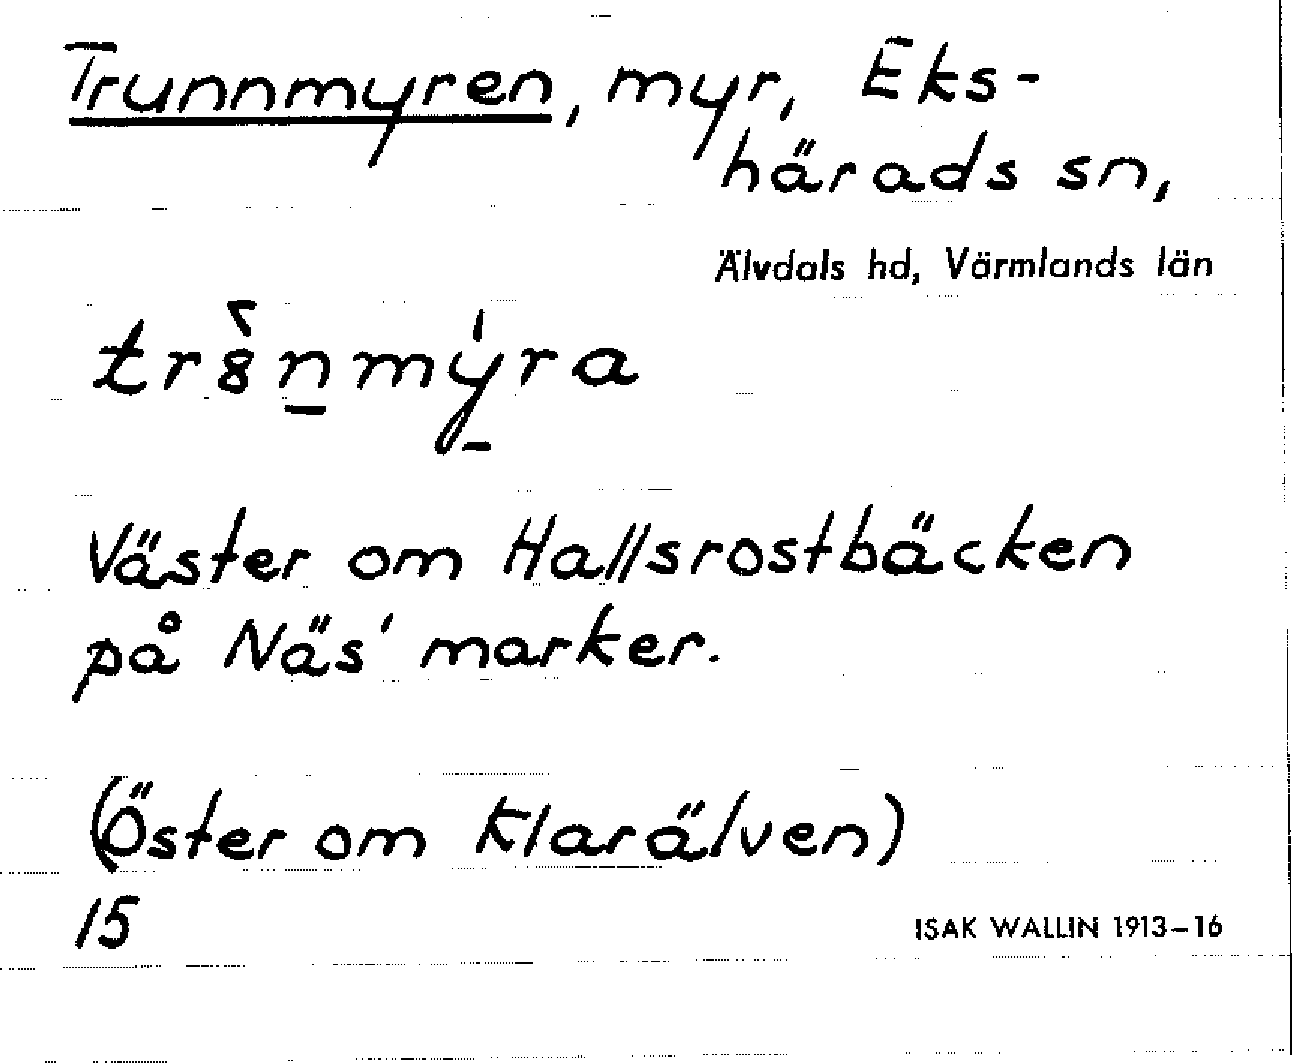 Trunnmyren, myr, Eks-
härads sn,
Älvdals hd, Värmlands län
tr8̀n̲mý̲ra
Väster om Hallsrostbäcken
på Näs' marker.
(Öster om Klarälven)
15
ISAK WALLIN 1913–16